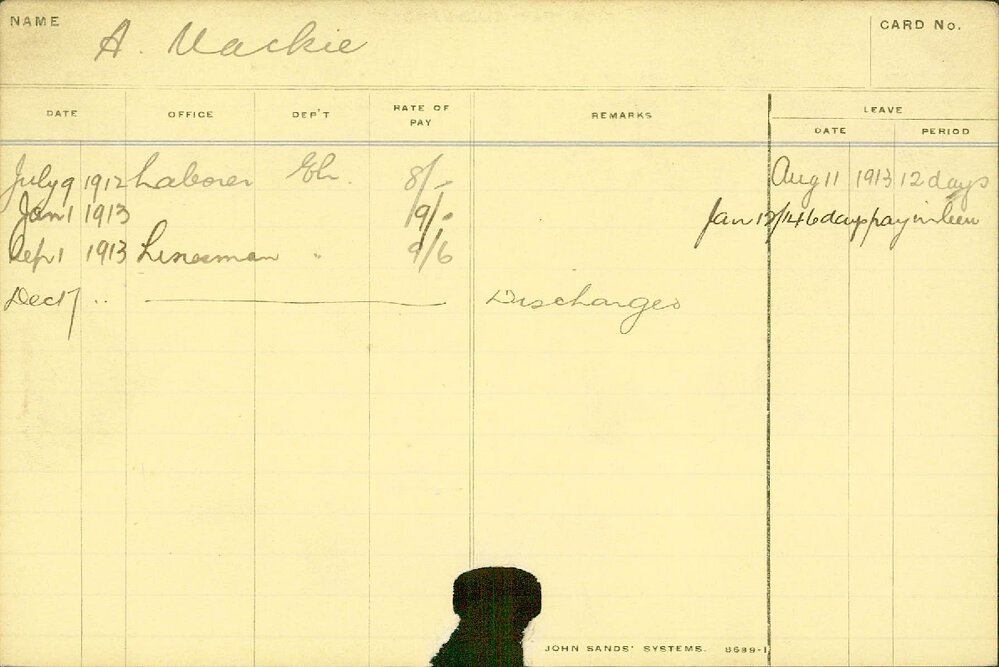 NAME
A. Mackie
CARD No.
DATE OFFICE DEP'T RATE OF PAY REMARKS LEAVE
DATE PERIOD
July 9 1912 Laborer Eh. 8/- Aug 11 1913 12 days
Jan 1 1913 9/- Jan 12/14 6 days pay in lieu
Sep 1 1913 Linesman " 9/6
Dec 17 " Discharged
JOHN SANDS' SYSTEMS. 8689-1